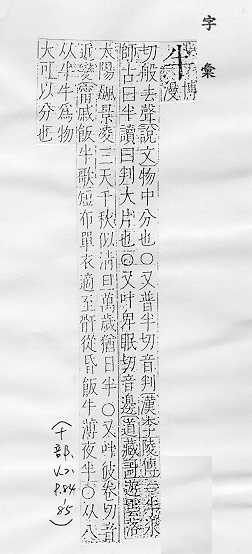 字彙
半
博
漫
切般去聲說文物中分也○又普半切音判漢李陵傳一半冰
師古曰半讀曰判大片也○又叶卑眠切音邊道藏歌遊雲落
太陽飆景凌三天千秋似清旦萬歲猶日半○又叶彼卷切音
近變甯戚飯牛歌短布單衣適至骭從昏飯牛薄夜半○从八
从牛牛為物
大可以分也
(十部.
V.2.
P.84
'85)